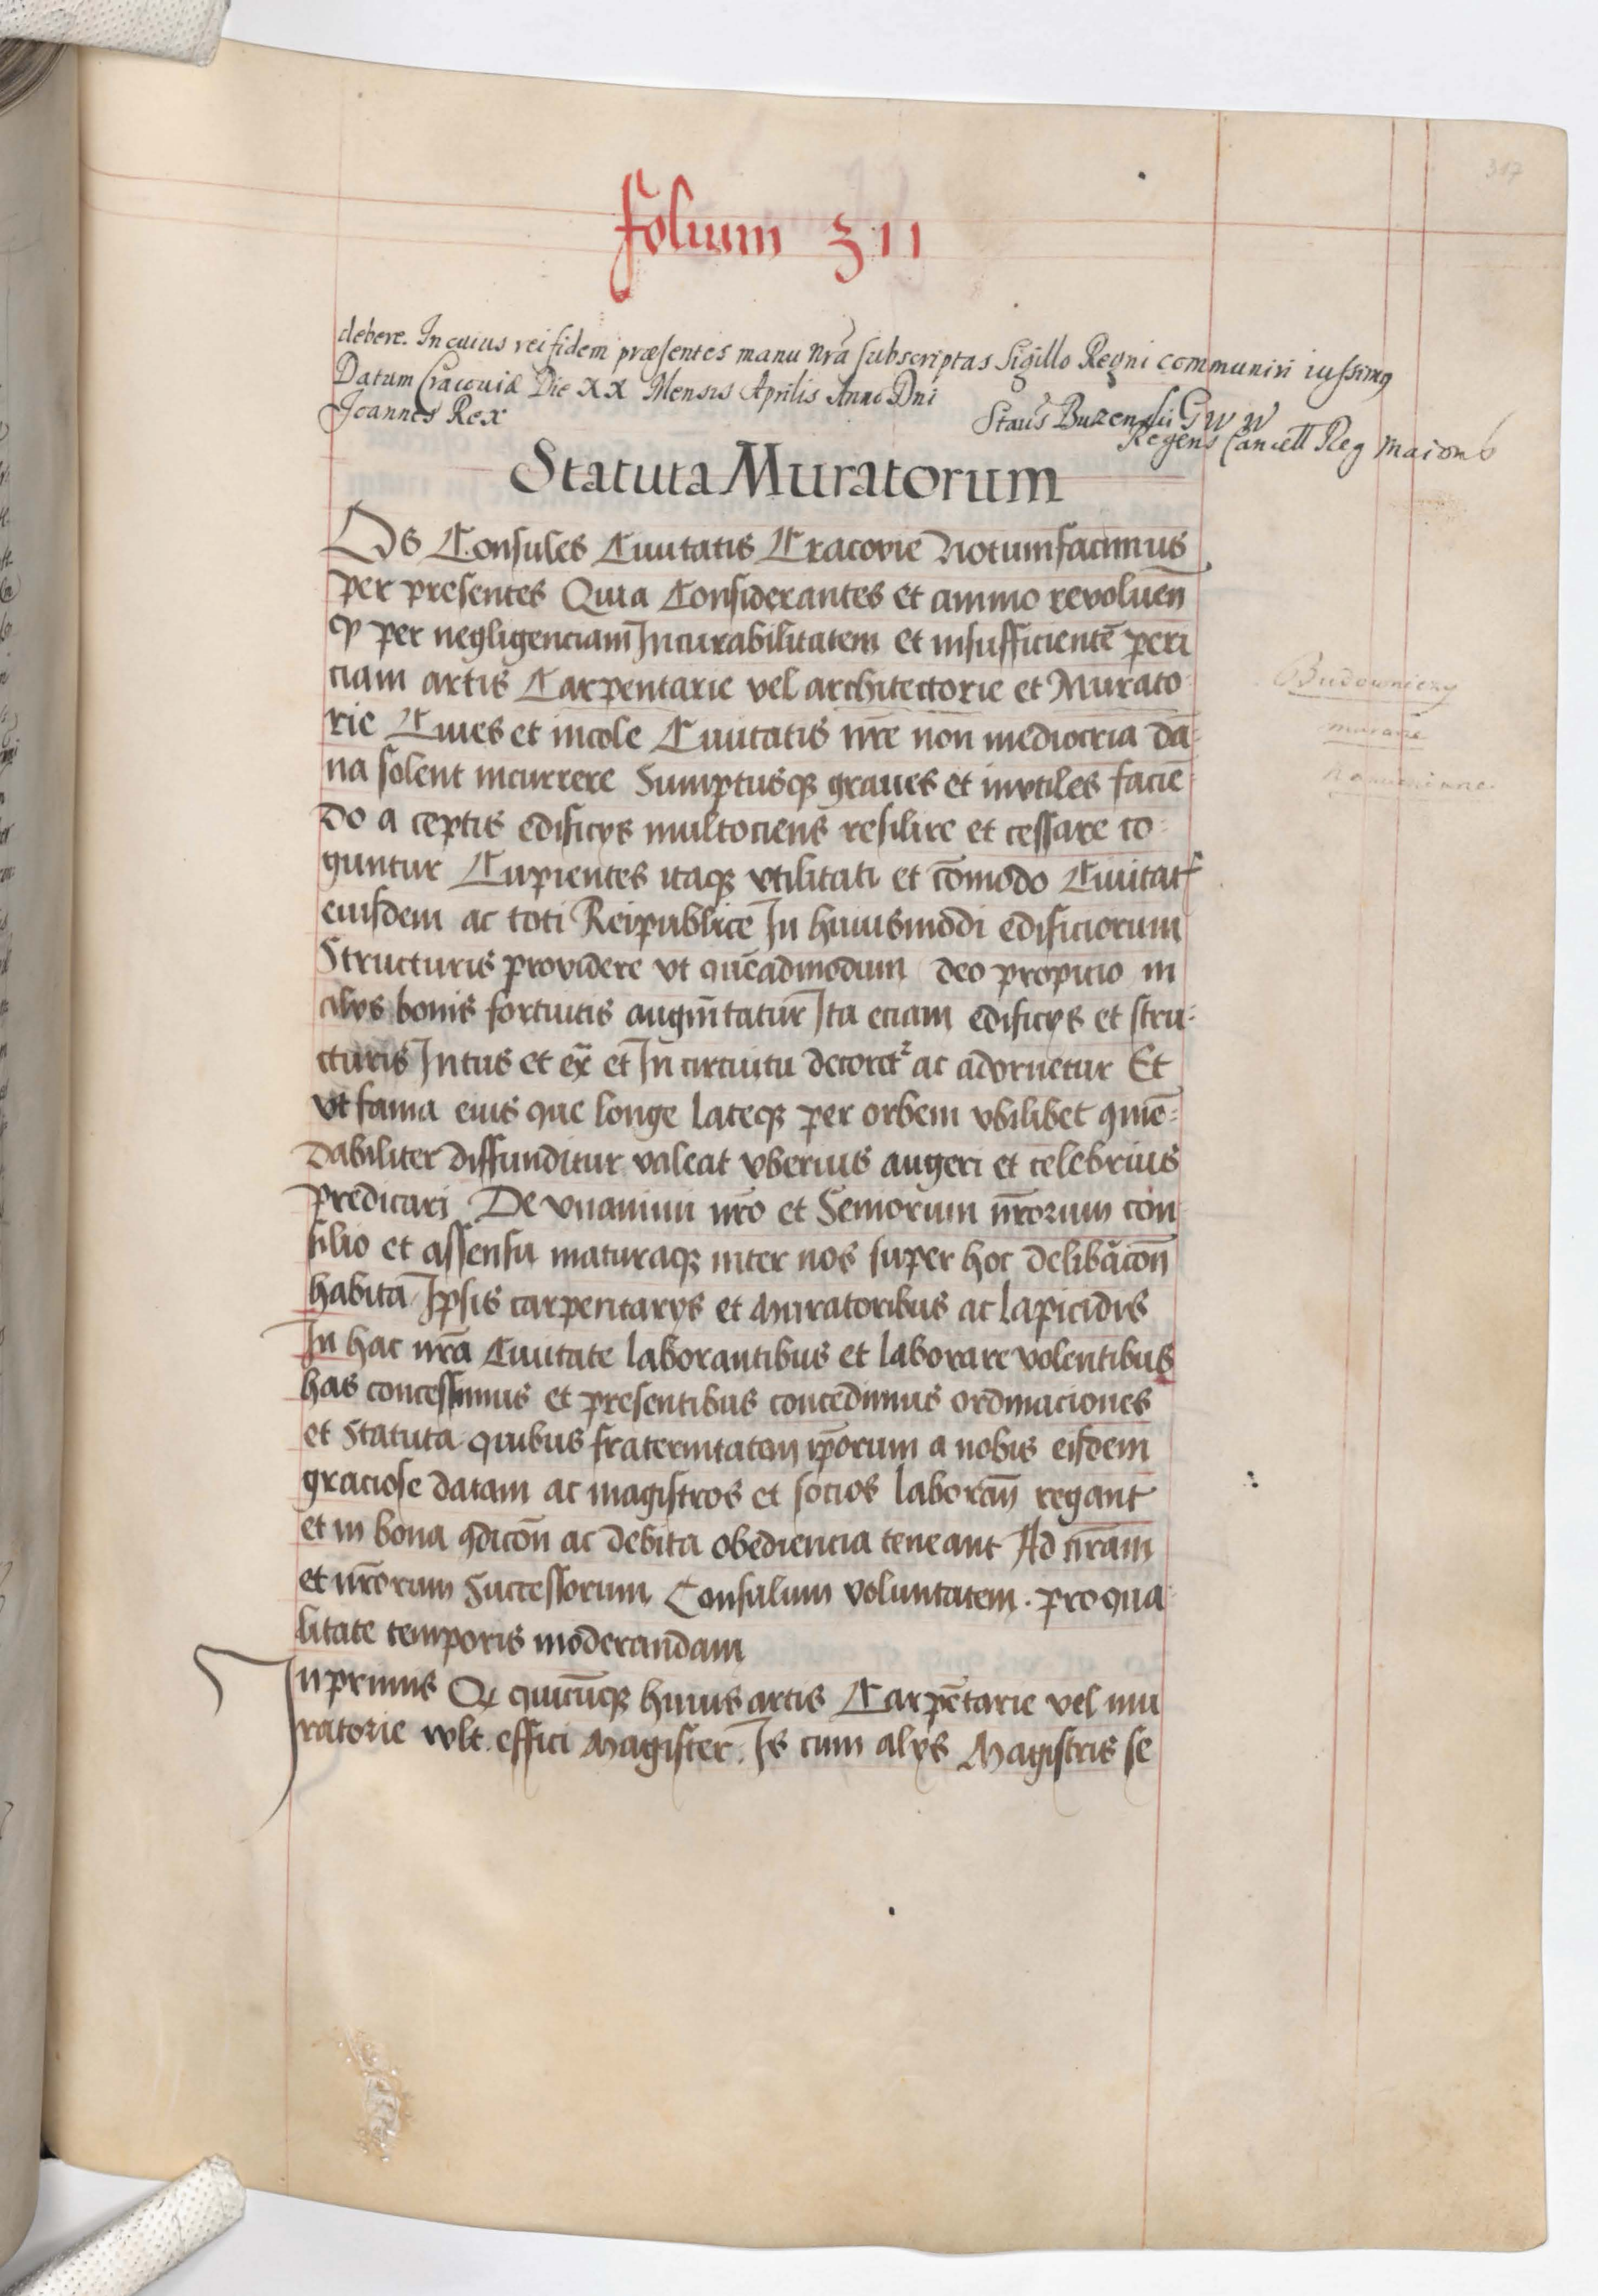 317
folium 311
debere. In cuius rei fidem præsentes manu nrã subscriptas Sigillo Regni communiri iussimꝰ
Datum Cracoviæ Die XX Mensis Aprilis Anno Dni
Joannes Rex
Staüs Buzenski G W W
Regens Cancell Reg Maioris
Statuta Muratorum
Os Consules Ciuitatis Cracovie Notum facimus
per presentes Quia Considerantes et animo revoluen̄
ꝙ per negligenciam Incurabilitatem et insufficientē peri
ciam artis Carpentarie vel architectorie et Murato-
rie Ciues et incole Ciuitatis nr̄e non mediocria dā-
na solent incurrere Sumptusqꝫ graues et invtiles faciē-
do a ceptis edificys multociens resilire et cessare co-
guntur Cupientes itaqꝫ vtilitati et cōmodo Ciuitatꝭ
eiusdem ac toti Reipublice In huiusmodi edificiorum
Structuris providere vt quēadmodum deo propicio in
alys bonis fortuitis augm̄tatur Ita eciam edificys et stru-
cturis Intus et ex̄ et In circuitu decoret᷑ ac adornetur Et
vt fama eius que longe lateqꝫ per orbem vbilibet ꝯmē-
dabiliter diffunditur valeat vberius augeri et celebrius
predicari De vnanimi nr̄o et Seniorum nr̄orum con
silio et assensu maturaqꝫ inter nos super hoc delibācōn
habita Ipsis carpentarys et Muratoribus ac lapicidis
In hac nrā Ciuitate laborantibus et laborare volentibus
has concessimus et presentibus concedimus ordinaciones
et Statuta quibus fraternitatem ip̄orum a nobis eisdem
graciose datam ac magistros et socios laboran̄ regant
et in bona ꝯdicōn ac debita obediencia teneant Ad nr̄am
et nr̄orum Successorum Consulum voluntatem. pro qua-
litate temporis moderandam
Inprimis Qꝫ quicūqꝫ huius artis Carpētarie vel mu
ratorie wlt effici Magister. Is cum alys Magistris se
Budowniczy
murarze